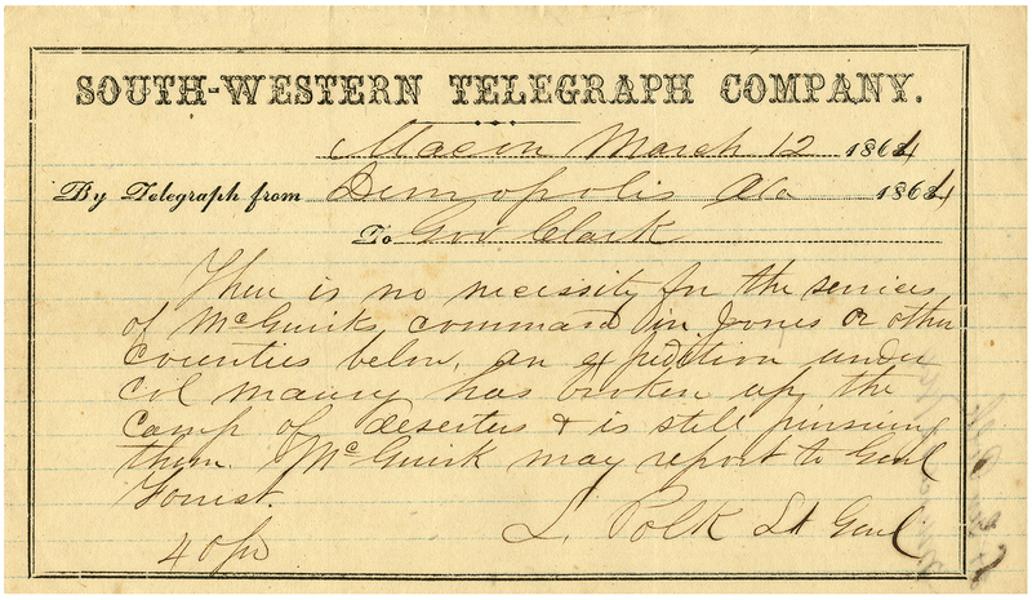 SOUTH-WESTERN TELEGRAPH COMPANY.
Macon March 12 1864
By Telegraph from Demopolis Ala 1864
To Gov Clark
There is no necessity for the services
of McGuirks command in Jones or other
Counties below, an expedition under
Col Maury has broken up the
Camp of deserters & is still pursuing
them. McGuirk may report to Genl
Forrest.
L. Polk Lt Genl
40